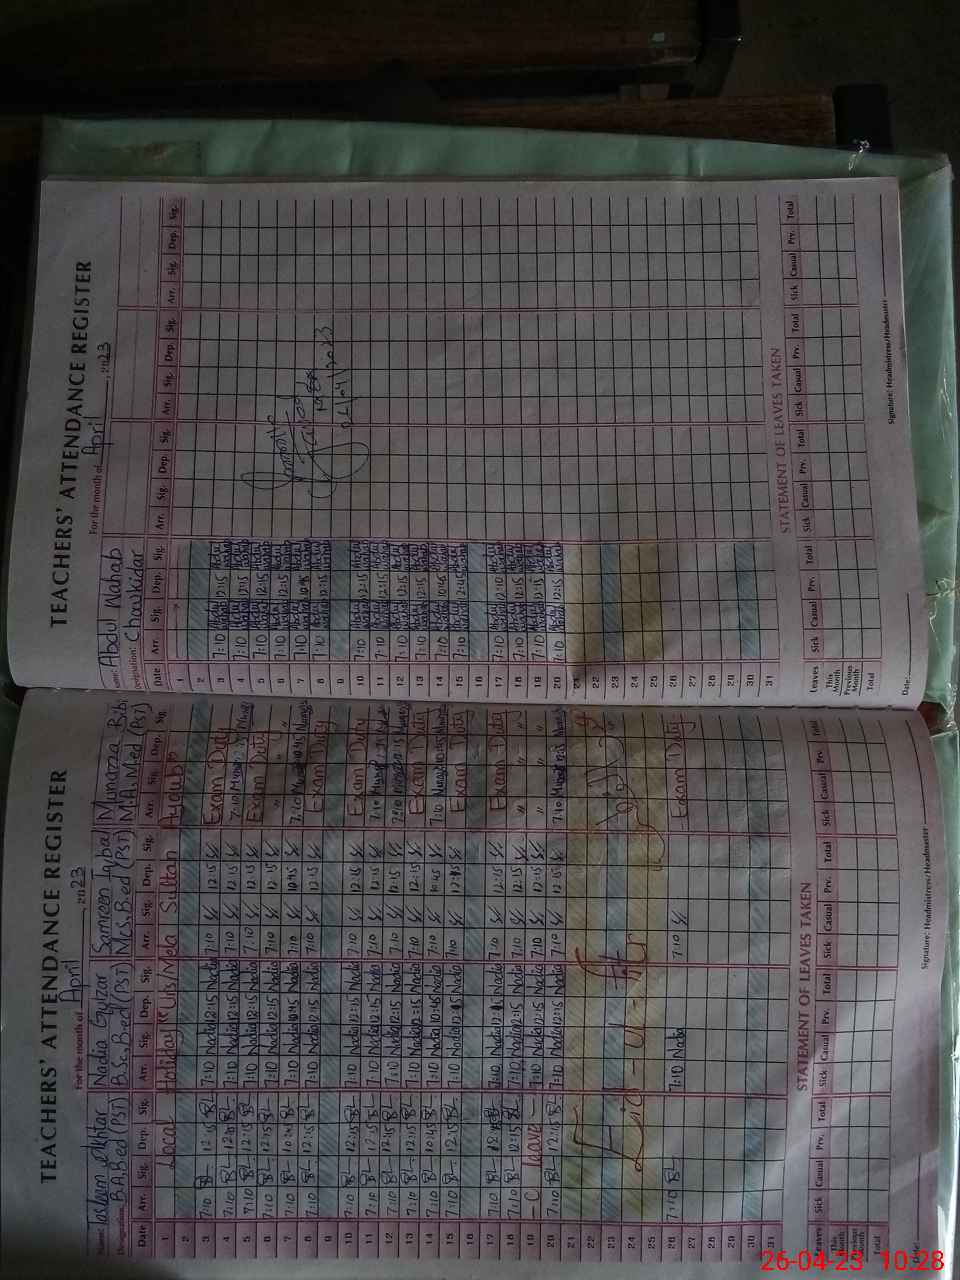 TEACHERS' ATTENDANCE REGISTER
For the month of April, 2023
Name: Tasleem Akhtar Nadia Gulzar Samreen Iqbal Munaza Bibi
Designation: B.A, B.ed (PST) B.Sc, B.ed (PST) M.sc, B.ed (PST) M.A, M.ed (PST)
Date Arr. Sig. Dep. Sig. Arr. Sig. Dep. Sig. Arr. Sig. Dep. Sig. Arr. Sig. Dep. Sig.
1 Local Holiday Urs Mola Sultan Ayubo
2
3 7:10 12:15 7:10 Nadia 12:15 Nadia 7:10 12:15 Exam Duty
4 7:10 7:10 Nadia 12:15 Nadia 7:10 12:15 7:10
5 7:10 12:15 7:10 Nadia 12:15 Nadia 7:10 12:15 Exam Duty
6 7:10 12:15 7:10 Nadia 12:15 Nadia 7:10 12:15 "
7 7:10 10:45 7:10 Nadia 10:45 Nadia 7:10 10:45 7:10 10:45
8 7:10 12:15 7:10 Nadia 12:15 Nadia 7:10 12:15 Exam Duty
9
10 7:10 12:15 7:10 Nadia 12:15 Nadia 7:10 12:15 Exam Duty
11 7:10 12:15 7:10 Nadia 12:15 Nadia 7:10 12:15 7:10
12 7:10 12:15 7:10 Nadia 12:15 Nadia 7:10 12:15 7:10
13 7:10 12:15 7:10 Nadia 12:15 Nadia 7:10 12:15 Exam Duty
14 7:10 10:45 7:10 Nadia 10:45 Nadia 7:10 10:45 7:10 10:45
15 7:10 12:15 7:10 Nadia 12:15 Nadia 7:10 12:15 Exam Duty
16
17 7:10 7:10 Nadia Nadia 7:10 12:15 Exam Duty
18 7:10 12:15 7:10 Nadia 12:15 Nadia 7:10 12:15 " "
19 - C leave - 7:10 Nadia 12:15 Nadia 7:10 12:15 " "
20 7:10 12:15 7:10 Nadia 12:15 Nadia 7:10 12:15 7:10
21
22
23 Eid-ul-Fitr
24
25
26 7:10 7:10 Nadia 7:10 Exam Duty
27
28
29
30
31
STATEMENT OF LEAVES TAKEN
Leaves Sick Casual Prv. Total Sick Casual Prv. Total Sick Casual Prv. Total Sick Casual Prv. Total
This Month
Previous Month
Total
Date: Signature: Headmistress/Headmaster
TEACHERS' ATTENDANCE REGISTER
For the month of April, 2023
Name: Abdul Wahab
Designation: Chowkidar
Date Arr. Sig. Dep. Sig. Arr. Sig. Dep. Sig. Arr. Sig. Dep. Sig. Arr. Sig. Dep. Sig.
1
2
3 7:10 Abdul Wahab 12:15 Abdul Wahab
4 7:10 Abdul Wahab 12:15 Abdul Wahab
5 7:10 Abdul Wahab 12:15 Abdul Wahab
6 7:10 Abdul Wahab 12:15 Abdul Wahab
7 7:10 Abdul Wahab 10:45 Abdul Wahab
8 7:10 Abdul Wahab 12:15 Abdul Wahab
9
10 7:10 Abdul Wahab 12:15 Abdul Wahab
11 7:10 Abdul Wahab 12:15 Abdul Wahab
12 7:10 Abdul Wahab 12:15 Abdul Wahab
13 7:10 Abdul Wahab 12:15 Abdul Wahab
14 7:10 Abdul Wahab 10:45 Abdul Wahab
15 7:10 Abdul Wahab 12:15 Abdul Wahab
16
17 7:10 Abdul Wahab 12:10 Abdul Wahab
18 7:10 Abdul Wahab 12:15 Abdul Wahab
19 7:10 Abdul Wahab 12:15 Abdul Wahab
20 7:10 Abdul Wahab 12:15 Abdul Wahab
21
22
23
24
25
26
27
28
29
30
31
STATEMENT OF LEAVES TAKEN
Leaves Sick Casual Prv. Total Sick Casual Prv. Total Sick Casual Prv. Total Sick Casual Prv. Total
This Month
Previous Month
Total
Date: Signature: Headmistress/Headmaster
26-04-23 10:28